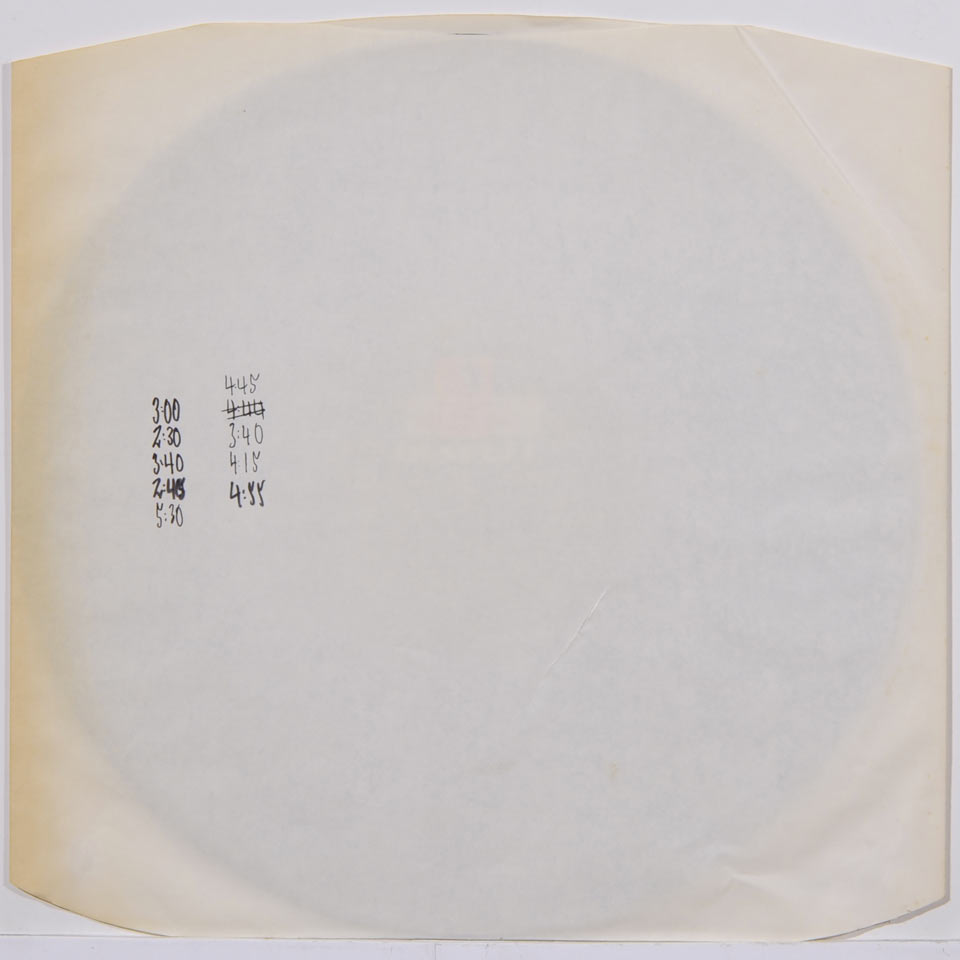 3:00
2:30
3:40
2:45
5:30
4:45
3:40
4:15
4:55